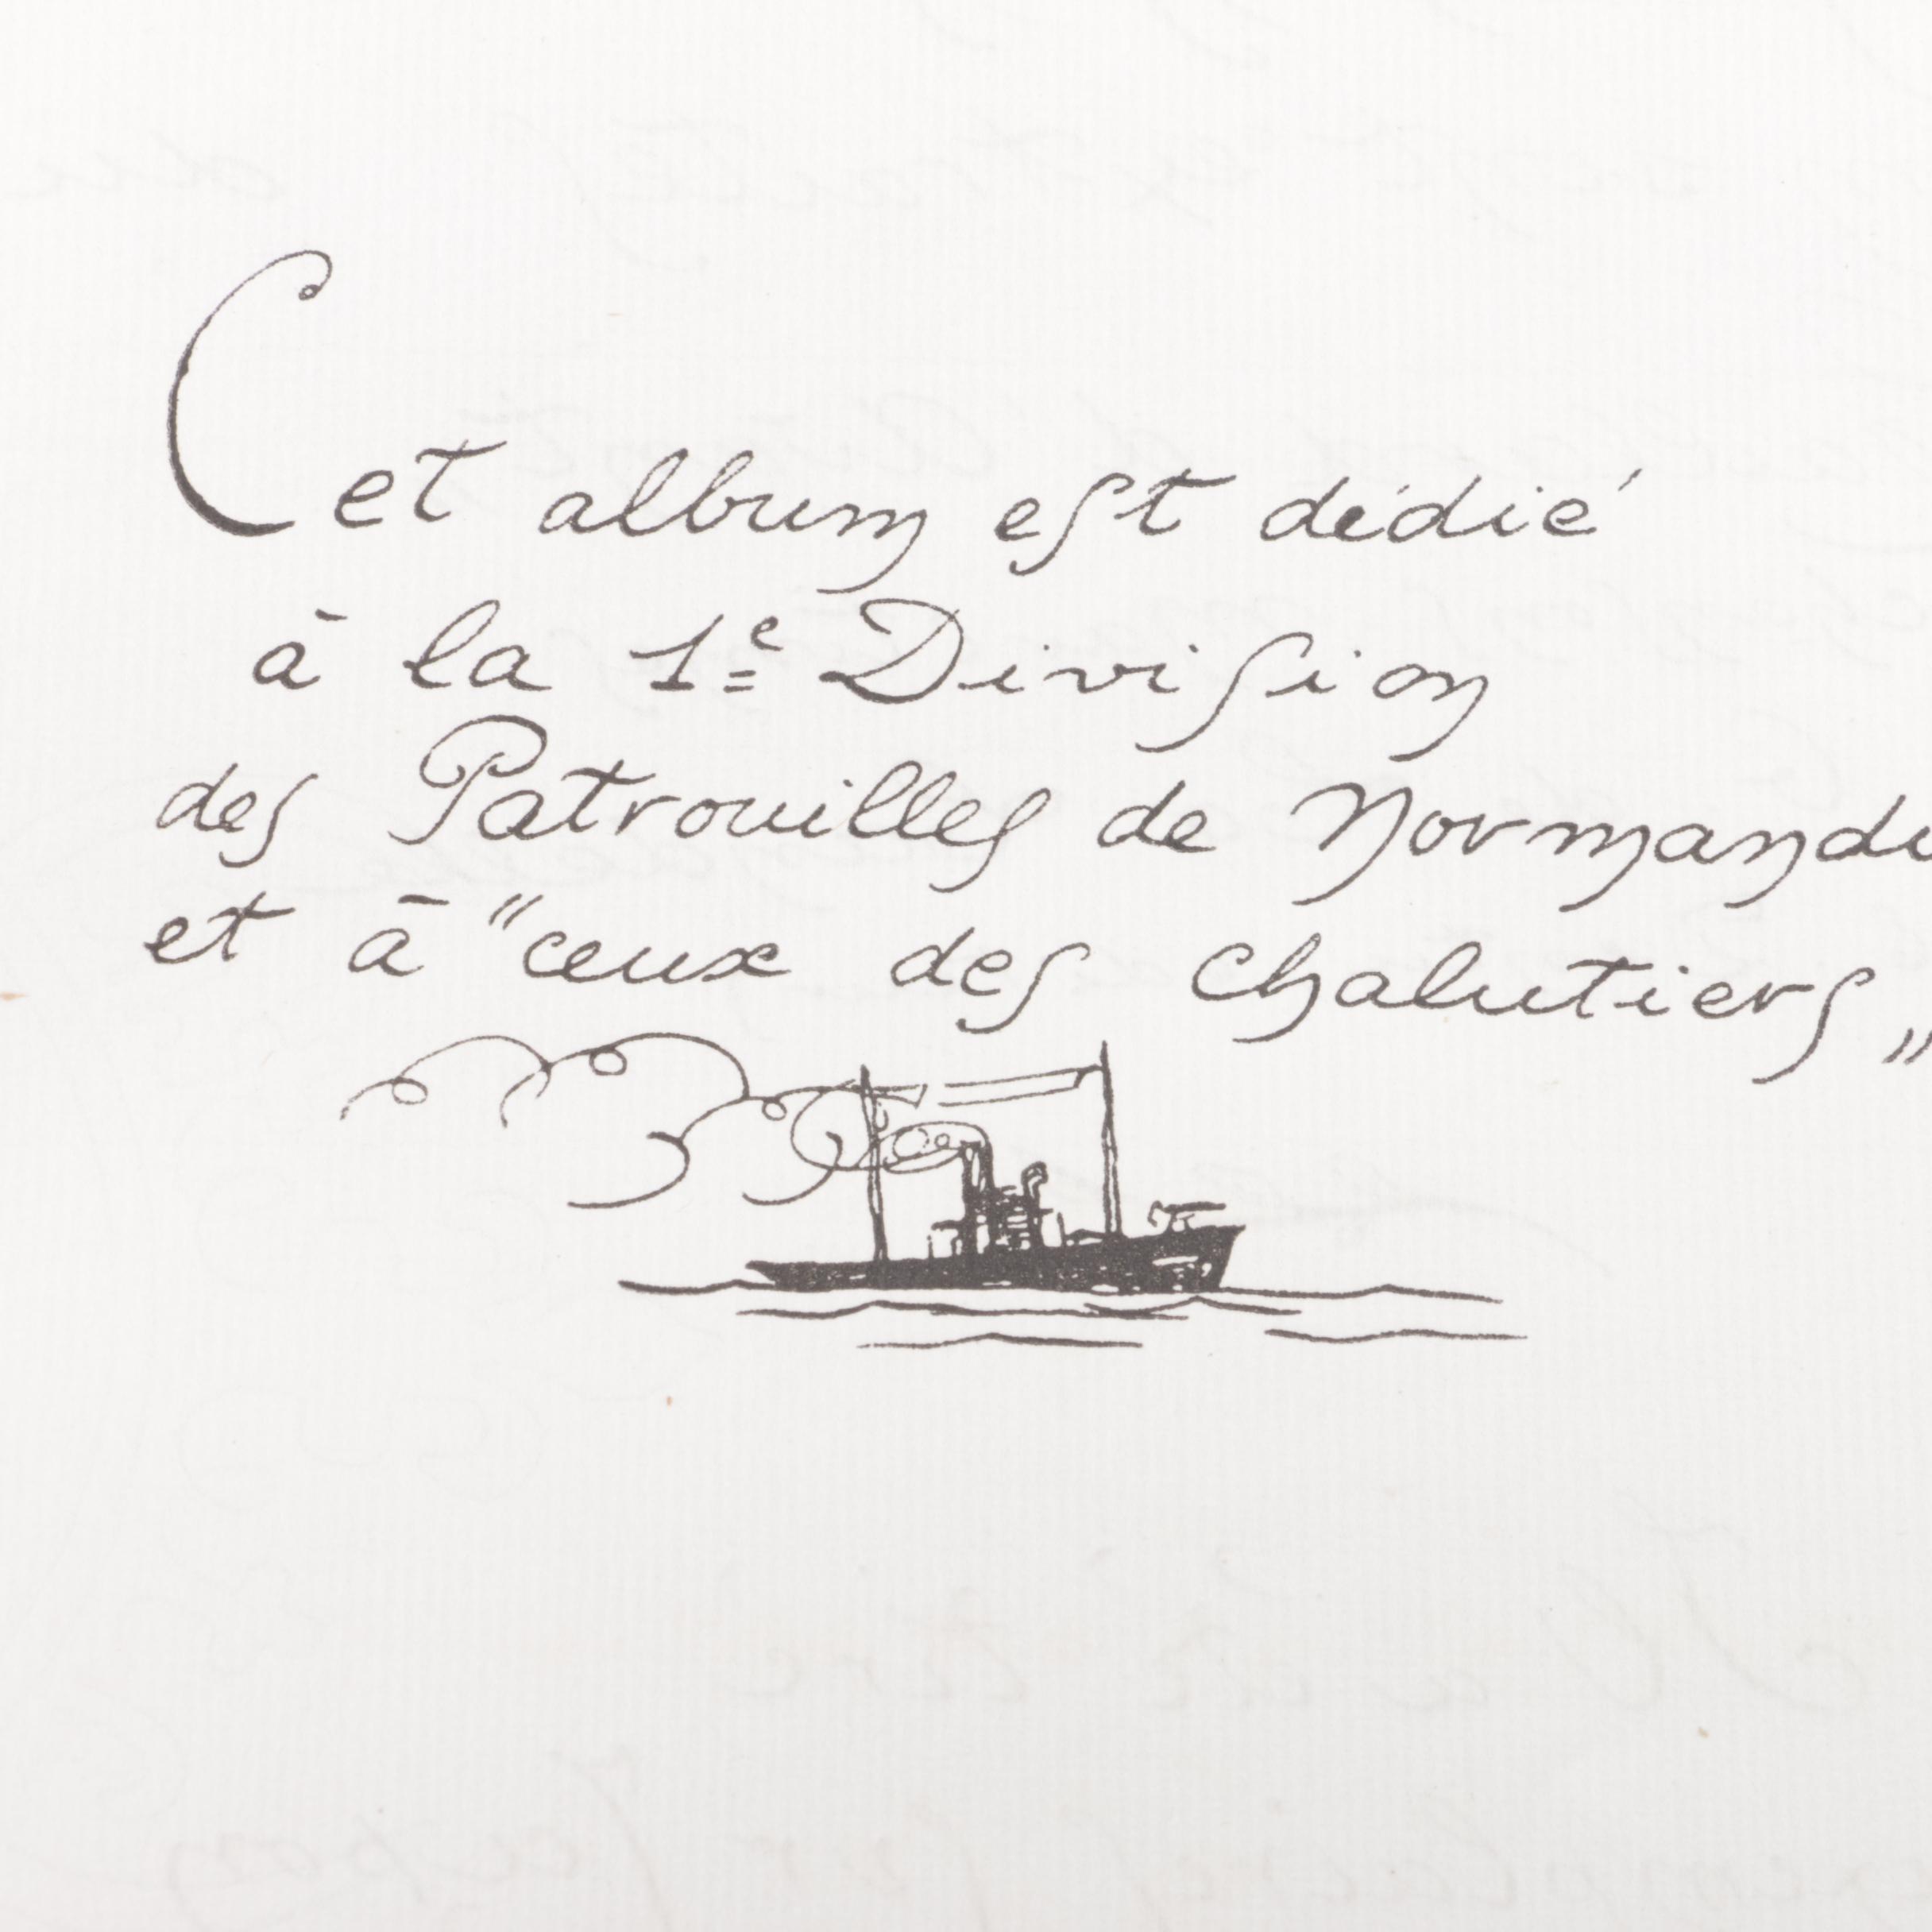 Cet album est dédié
à la 1e Division
des Patrouilles de Normandi
et à "ceux des chalutiers"